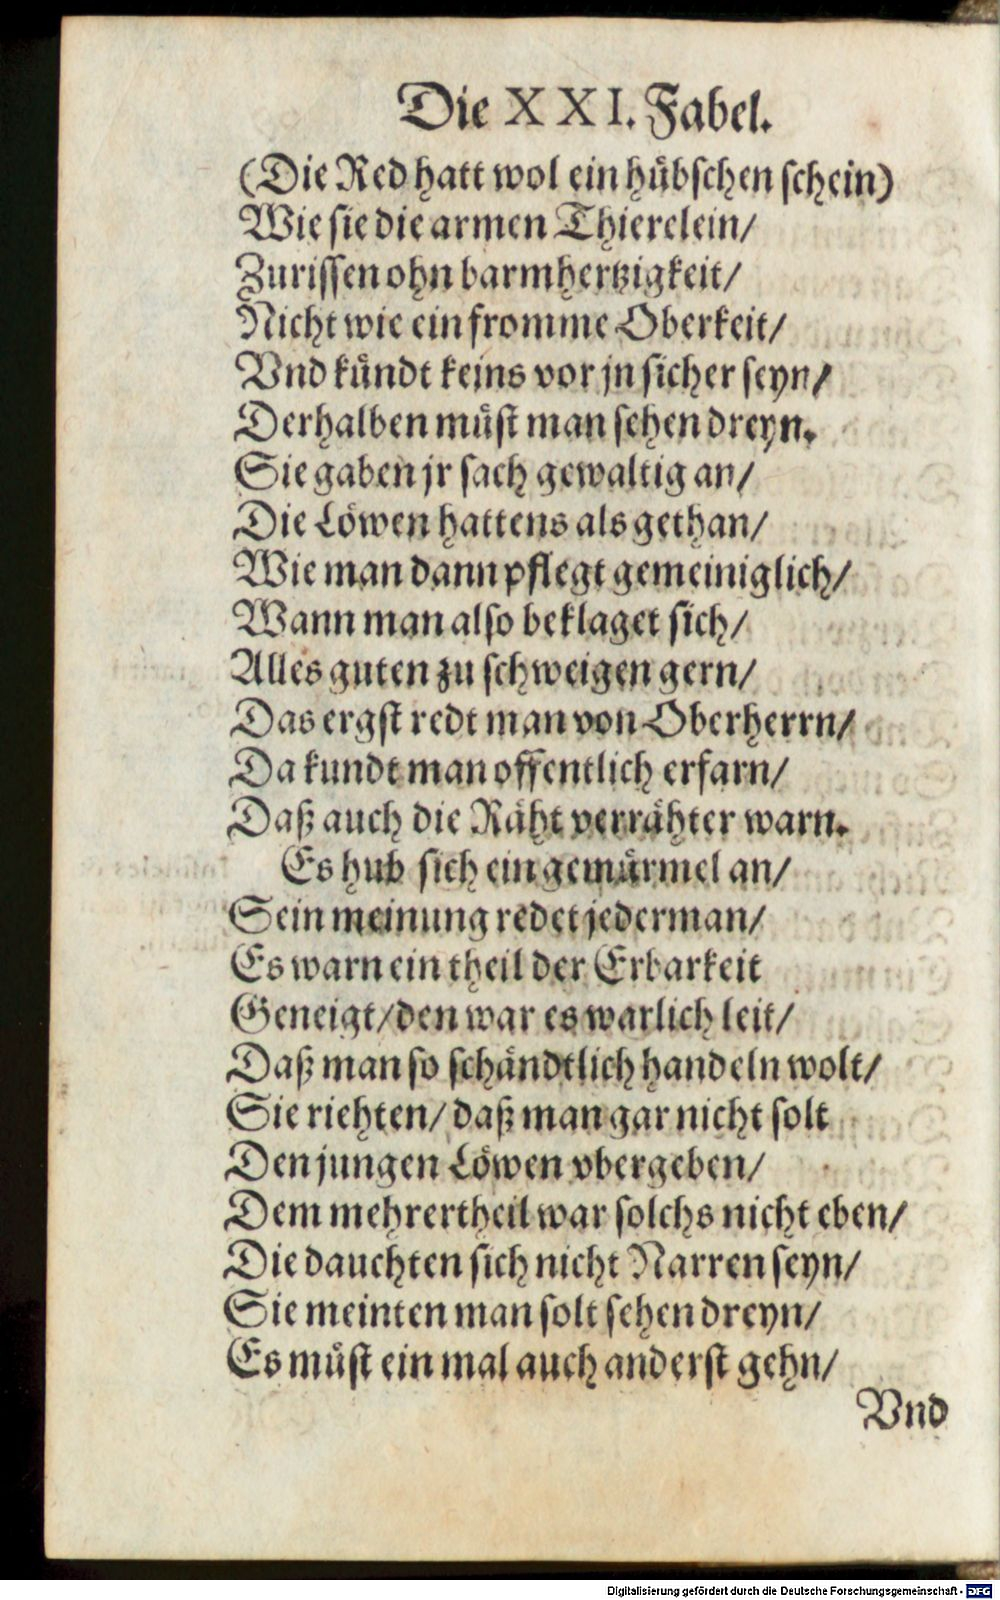 Die XXI. Fabel.
(Die Red hatt wol ein hübschen schein)
Wie sie die armen Thierelein/
Zurissen ohn barmhertzigkeit/
Nicht wie ein fromme Oberkeit/
Vnd kündt keins vor jn sicher seyn/
Derhalben müst man sehen dreyn.
Sie gaben jr sach gewaltig an/
Die Löwen hattens als gethan/
Wie man dann pflegt gemeiniglich/
Wann man also beklaget sich/
Alles guten zu schweigen gern/
Das ergst redt man von Oberherrn/
Da kundt man offentlich erfarn/
Daß auch die Räht verrähter warn.
Es hub sich ein gemürmel an/
Sein meinung redet jederman/
Es warn ein theil der Erbarkeit
Geneigt/den war es warlich leit/
Daß man so schändtlich handeln wolt/
Sie riehten/ daß man gar nicht solt
Den jungen Löwen vbergeben/
Dem mehrertheil war solchs nicht eben/
Die dauchten sich nicht Narren seyn/
Sie meinten man solt sehen dreyn/
Es müst ein mal auch anderst gehn/
Vnd
Digitalisierung gefördert durch die Deutsche Forschungsgemeinschaft - DFG